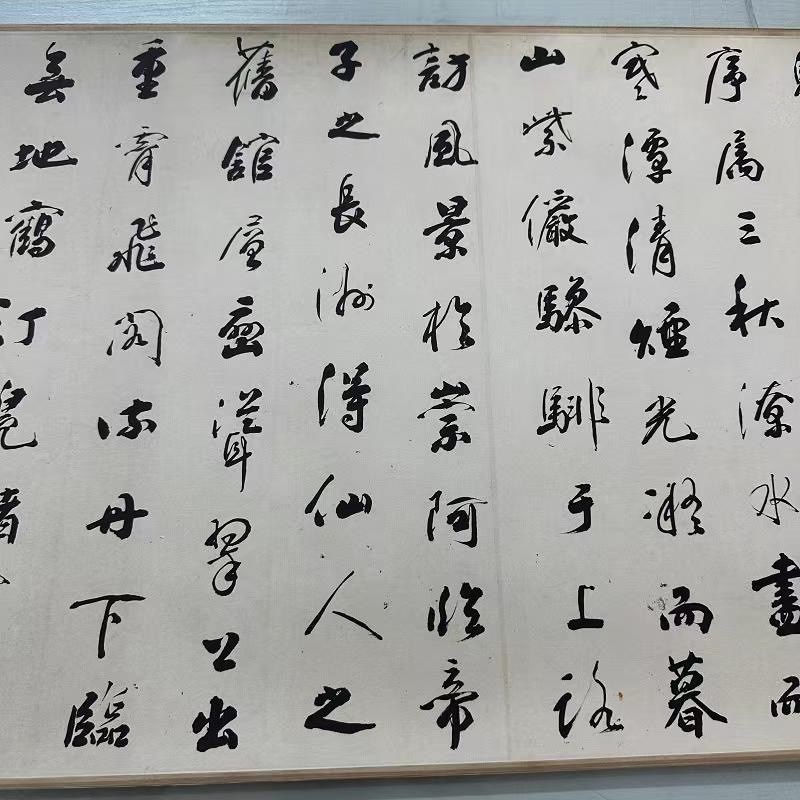 序属三秋潦水盡而
寒潭清煙光凝而暮
山紫儼驂騑于上路
訪風景於崇阿臨帝
子之長洲得仙人之
舊館層巒聳翠上出
重霄飛閣流丹下臨
無地鶴汀鳧渚